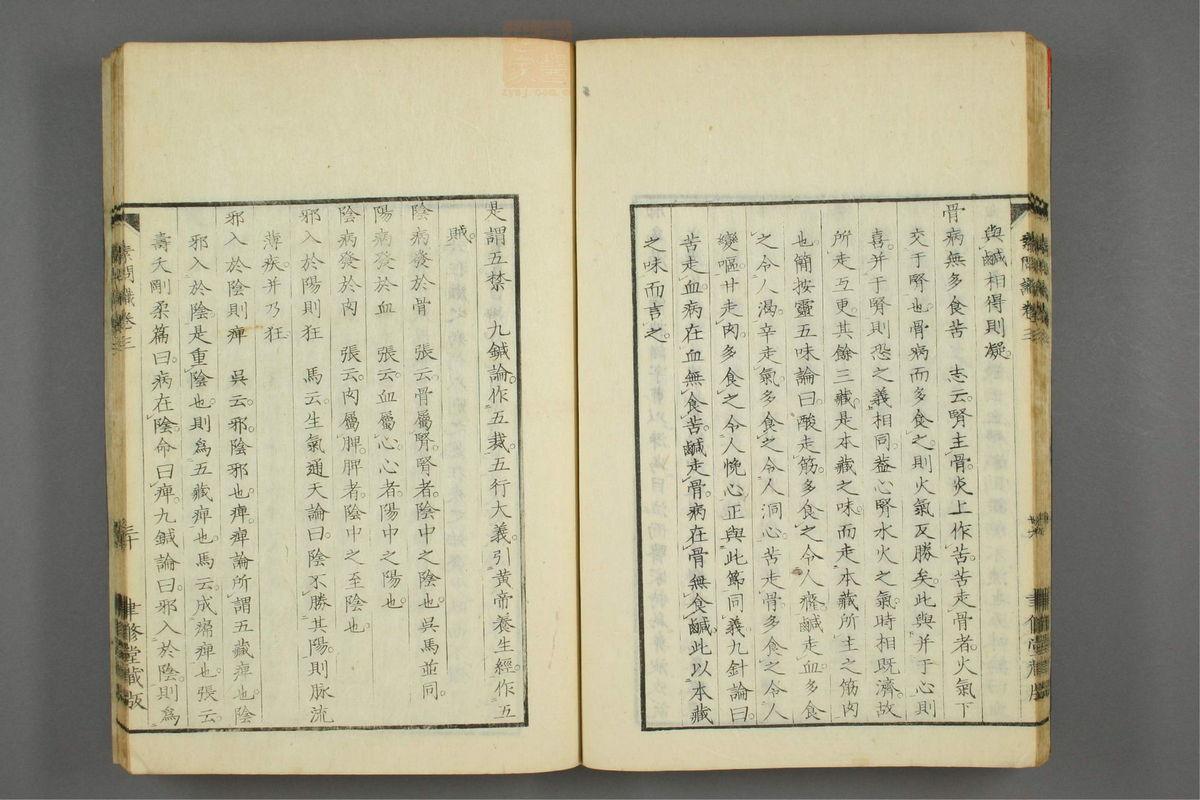 與鹹相得則凝。
骨病無多食苦　志云腎主骨。炎上作苦。苦走骨者。火氣下
交于腎也。骨病而多食之。則火氣反勝矣。此與并于心則
喜。并于腎則恐之義相同。葢心腎水火之氣。時相既濟。故
所走互更。其餘三藏。是本藏之味。而走本藏所主之筋肉
也。簡按靈五味論曰。酸走筋。多食之令人癃。鹹走血。多食
之令人渴。辛走氣。多食之令人洞心。苦走骨。多食之令人
變嘔。甘走肉。多食之令人悗心。正與此節同義。九針論曰。
苦走血。病在血無食苦。鹹走骨。病在骨無食鹹。此以本藏
之味而言之。
是謂五禁　九鍼論。作五裁。五行大義。引黃帝養生經。作五
賊。
陰病發於骨　張云。骨屬腎。腎者。陰中之陰也。吳馬並同。
陽病發於血　張云。血屬心。心者。陽中之陽也。
陰病發於肉　張云。肉屬脾。脾者。陰中之至陰也。
邪入於陽則狂　馬云。生氣通天論曰。陰不勝其陽。則脉流
薄疾。并乃狂。
邪入於陰則痺　吳云。邪陰邪也。痺。痺論所謂五藏痺也。陰
邪入於陰。是重陰也。則爲五藏痺也。馬云。成痛痺也。張云。
壽夭剛柔篇曰。病在陰。命曰痺。九鍼論曰。邪入於陰。則爲
素問識卷三
三十
聿修堂藏版